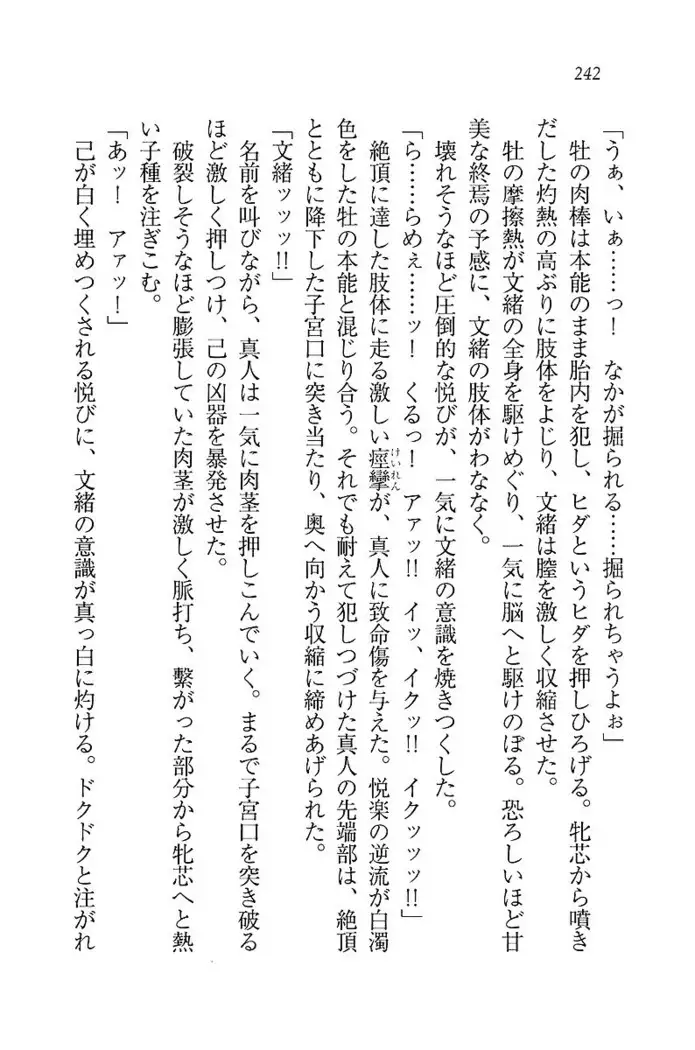 242
「うぁ、いぁ……っ！　なかが掘られる……掘られちゃうよぉ」
　牡の肉棒は本能のまま胎内を犯し、ヒダというヒダを押しひろげる。牝芯から噴き
だした灼熱の高ぶりに肢体をよじり、文緒は膣を激しく収縮させた。
　牡の摩擦熱が文緒の全身を駆けめぐり、一気に脳へと駆けのぼる。恐ろしいほど甘
美な終焉の予感に、文緒の肢体がわななく。
　壊れそうなほど圧倒的な悦びが、一気に文緒の意識を焼きつくした。
「ら……らめぇ……ッ！　くるっ！　アァッ!!　イッ、イクッ!!　イクッッッ!!」
　絶頂に達した肢体に走る激しい痙攣けいれんが、真人に致命傷を与えた。悦楽の逆流が白濁
色をした牡の本能と混じり合う。それでも耐えて犯しつづけた真人の先端部は、絶頂
とともに降下した子宮口に突き当たり、奥へ向かう収縮に締めあげられた。
「文緒ッッッ!!」
　名前を叫びながら、真人は一気に肉茎を押しこんでいく。まるで子宮口を突き破る
ほど激しく押しつけ、己の凶器を暴発させた。
　破裂しそうなほど膨張していた肉茎が激しく脈打ち、繋がった部分から牝芯へと熱
い子種を注ぎこむ。
「あッ！　アァッ！」
　己が白く埋めつくされる悦びに、文緒の意識が真っ白に灼ける。ドクドクと注がれ